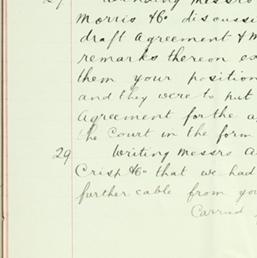 27 Attending Messrs
Morris & Co discussi
draft Agreement & m
remarks thereon ex
them your position
and they were to put
Agreement for the a
the Court in the form
29 Writing Messrs A
Crisp & Co that we had
further cable from you
Carrd